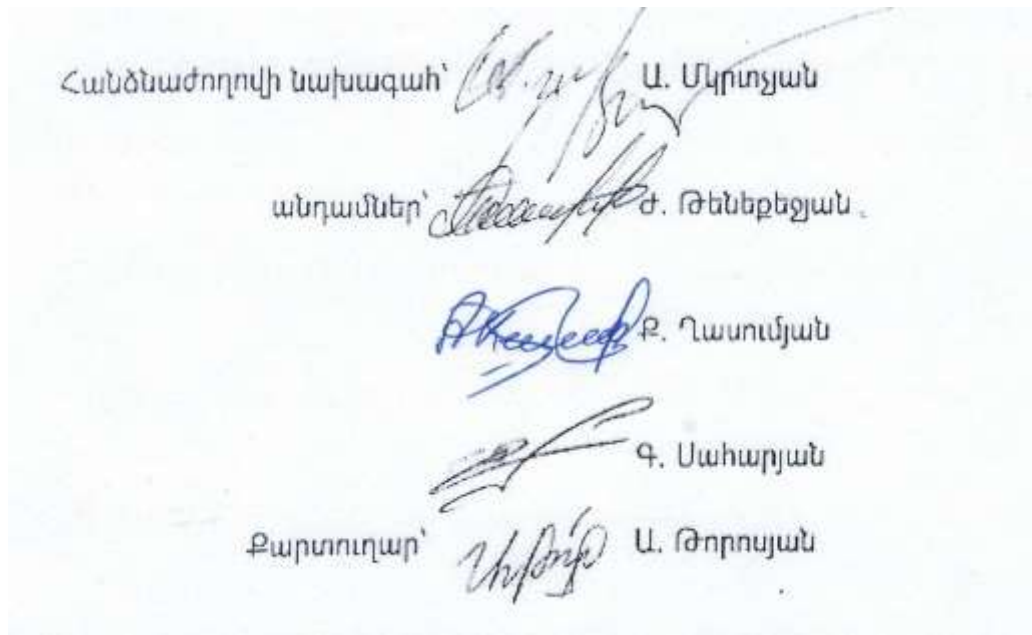 Հանձնաժողովի նախագահ՝ Ա. Մկրտչյան
անդամներ՝ Ժ. Թենեքեջյան
Ք. Ղասումյան
Գ. Սահարյան
Քարտուղար՝ Ա. Թորոսյան